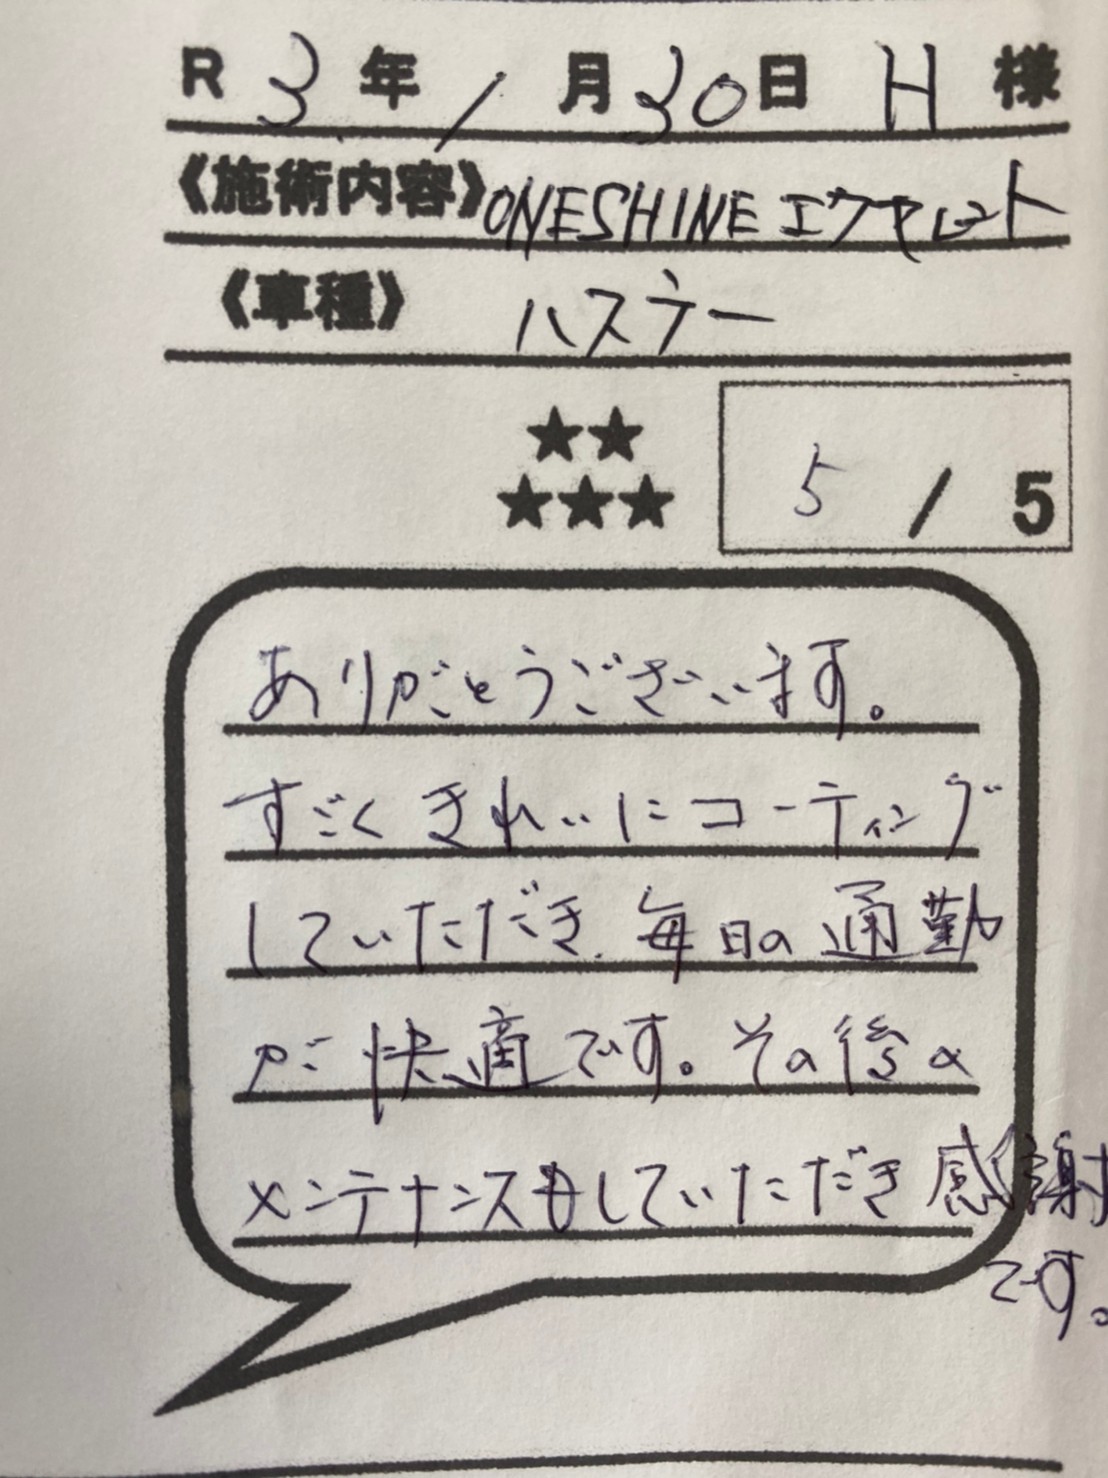 R 3 年 1 月 30 日 H 様
《施術内容》 ONESHINE エクセレント
《車種》 ハスラー
★★
★★★
5 / 5
ありがとうございます。
すごくきれいにコーティング
していただき、毎日の通勤
が快適です。その後の
メンテナンスもしていただき感謝
です。